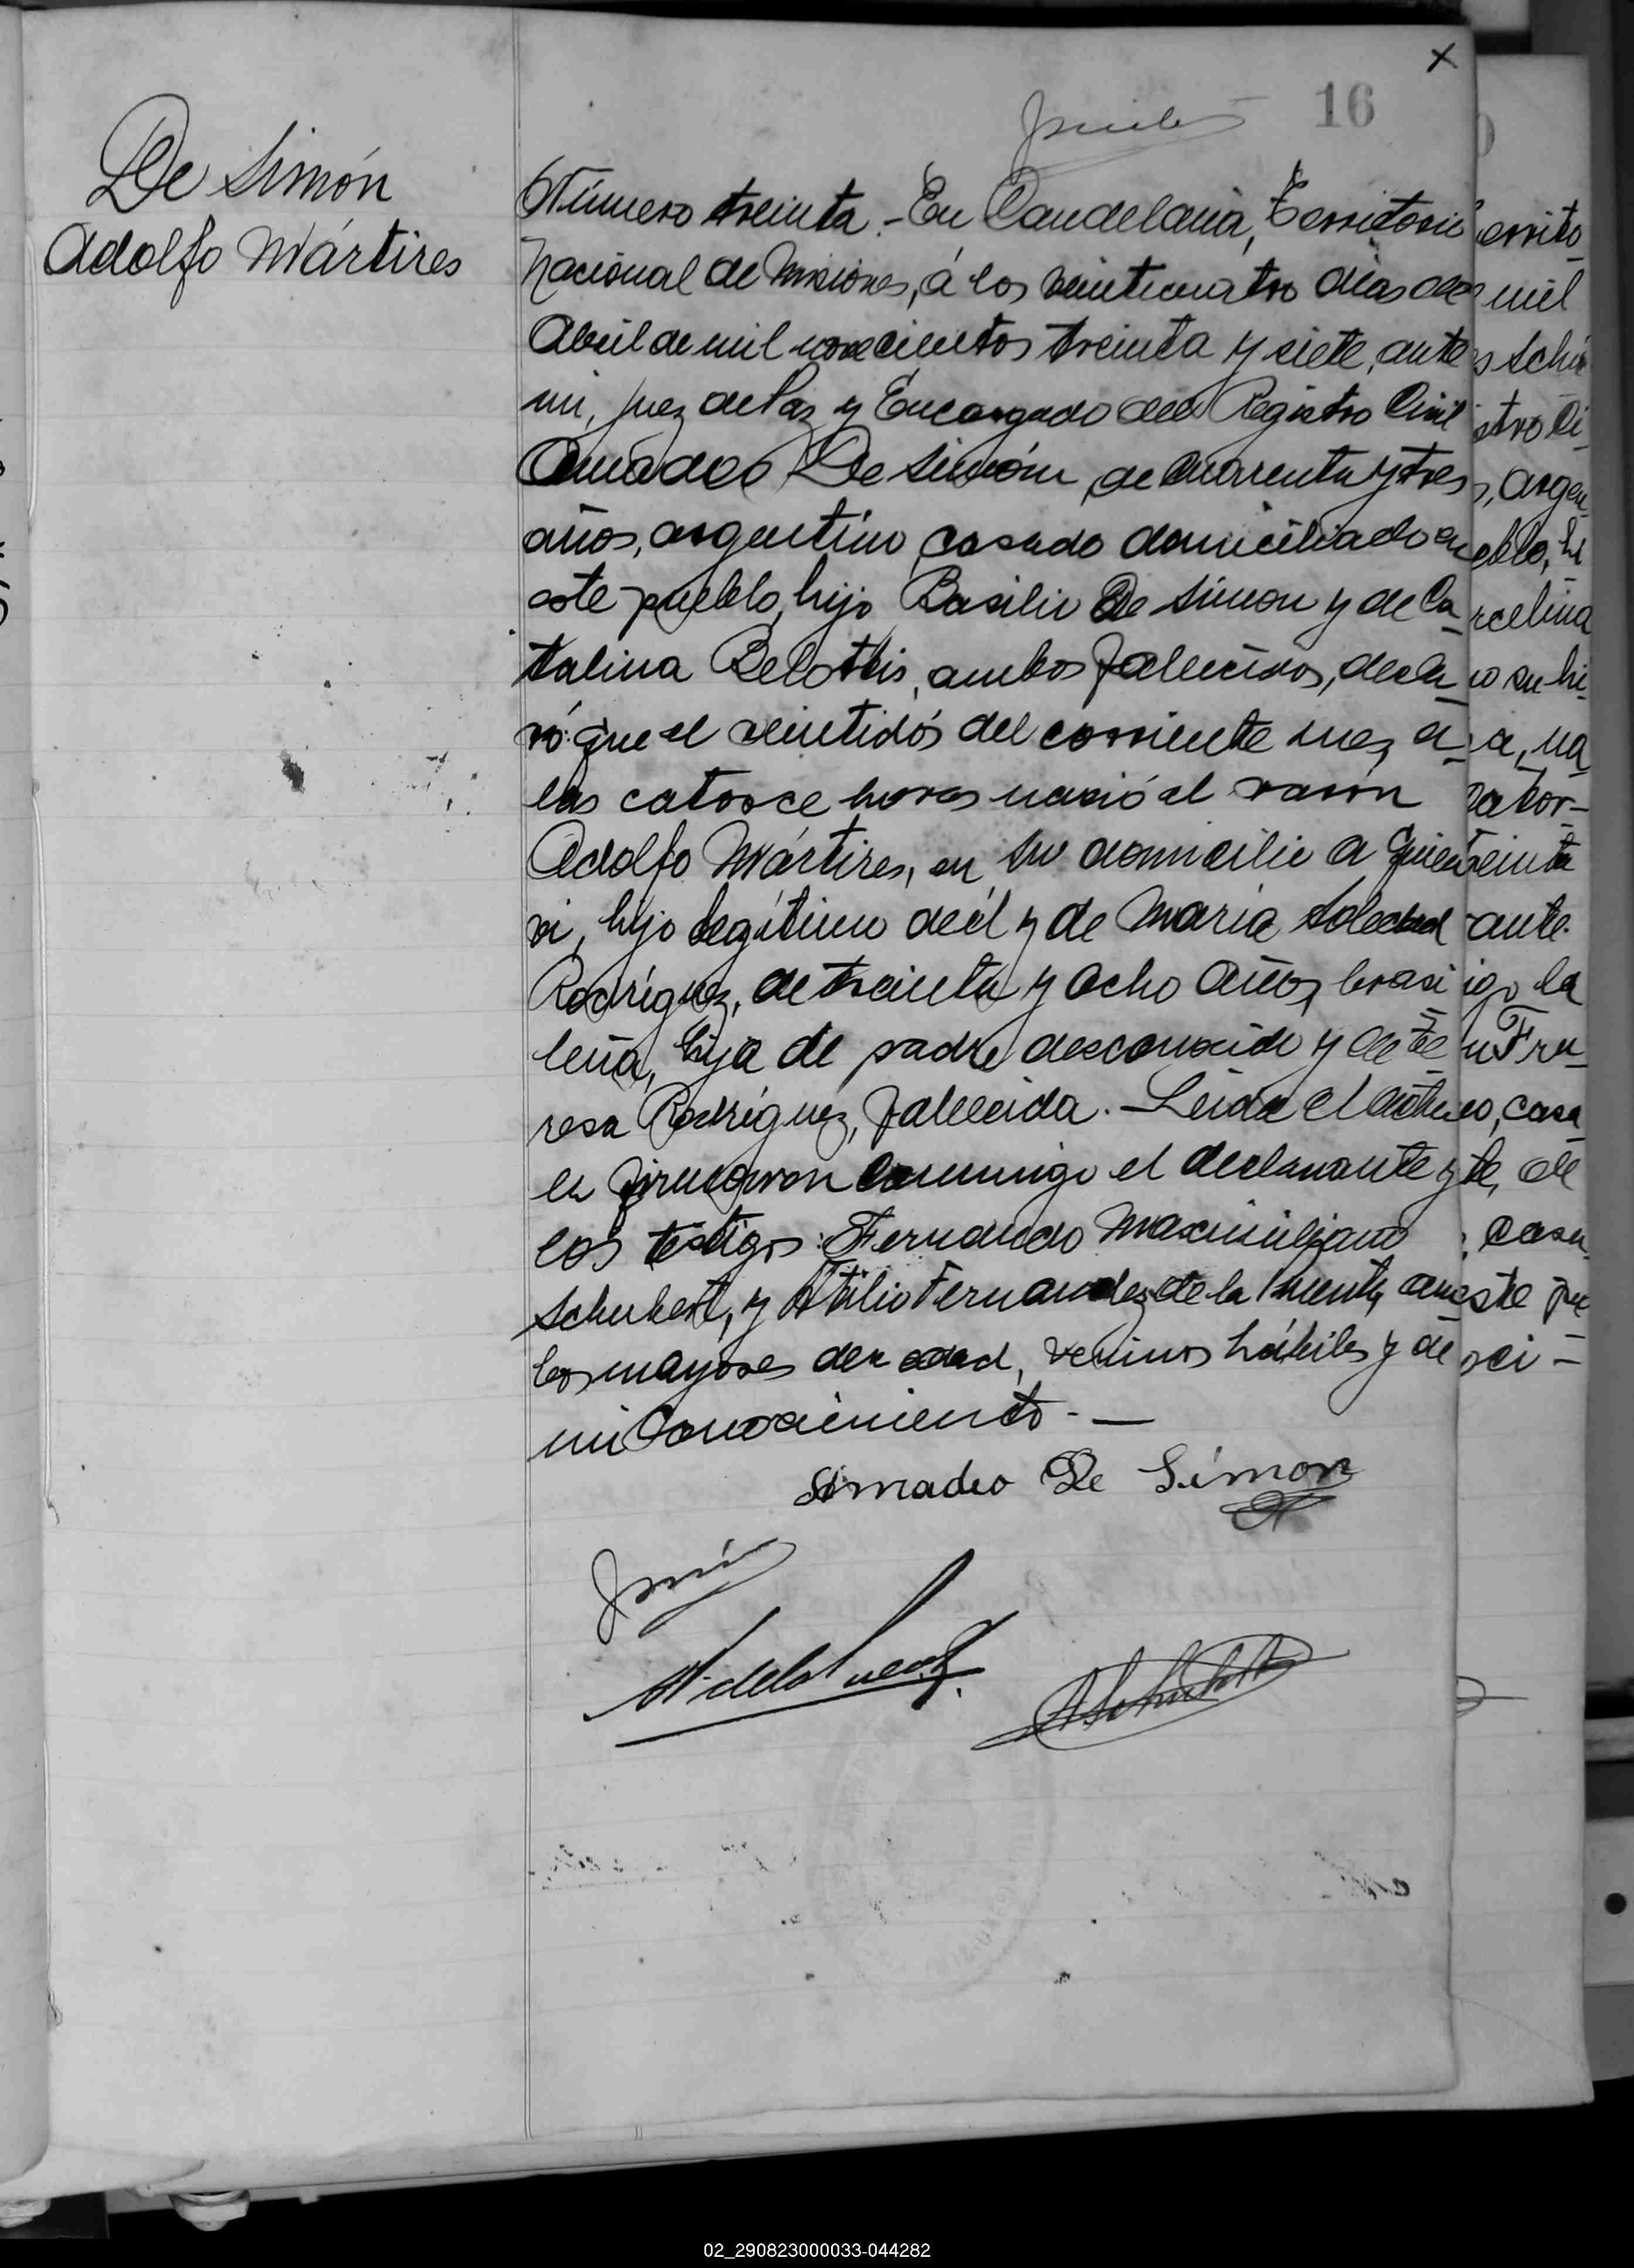 De Simón
Adolfo Mártires
16
Número treinta.- En Candelaria, Territorio
Nacional de Misiones, á los veinticuatro días de
Abril de mil novecientos treinta y siete, ante
mi, Juez de Paz y Encargado del Registro Civil
Amadeo De Simón, de cuarenta y tres
años, argentino, casado domiciliado en
este pueblo, hijo Basilio De Simon y de Ca-
talina Belottis, ambos fallecidos, decla-
ró: que el veintidós del corriente mes a
las catorce horas nació el varón
Adolfo Mártires, en su domicilio a quien
vi, hijo legítimo de él y de María Soledad
Rodríguez, de treinta y ocho años, brasi-
leña, hija de padre desconocido y de Te-
resa Rodríguez, fallecida.- Leída el acta
la firmaron conmigo el declarante y
los testigos: Fernando Maximiliano
Schubert, y Atilio Fernandez de la Puente, am-
bos mayores de edad, vecinos hábiles y de
mi conocimiento.-
Amadeo De Simon
errito-
mil
s Schu
stro Ci-
s, argen
eblo, hi
rcelina
o su hi-
a, na-
cator-
treinta
ante.
igo la
n Fru-
o, casa
te, de
casa
este pu
oci-
02_290823000033-044282